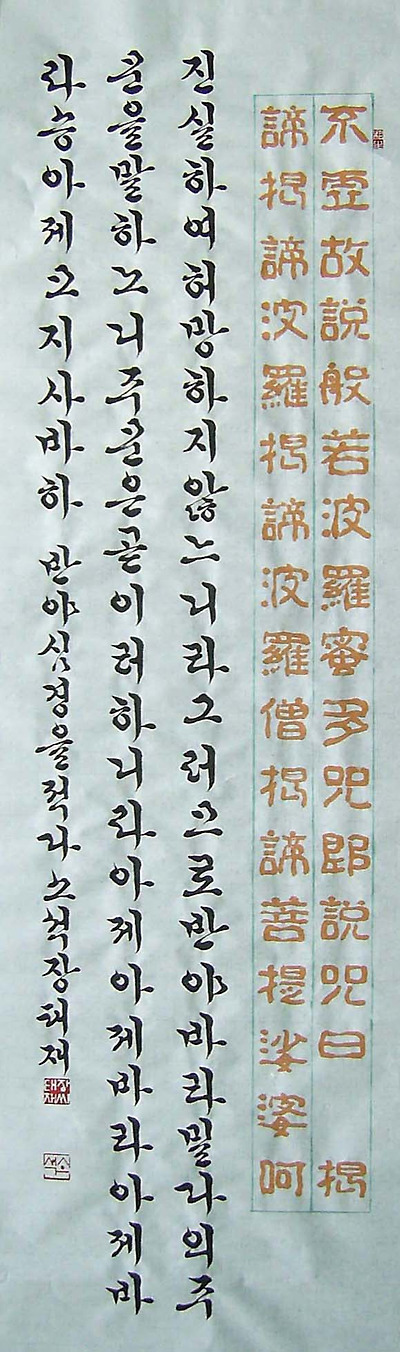 不虛故說般若波羅蜜多咒即說咒曰 揭
諦揭諦波羅揭諦波羅僧揭諦菩提娑婆呵
진실하여허망하지않느니라그러므로반야바라밀다의주
문을말하노니주문은곧이러하니라아제아제바라아제바
라승아제모지사바하 반야심경을적다소석장태재